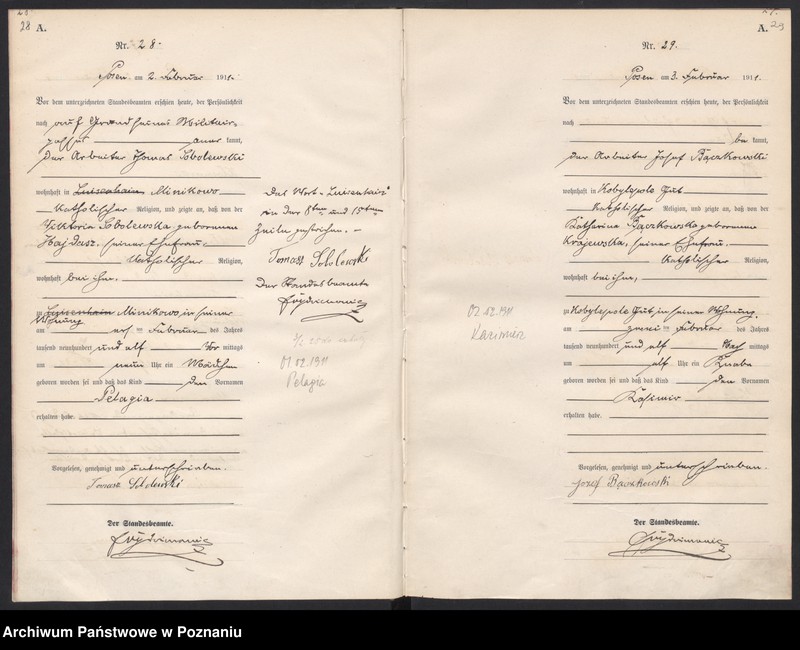 28 A.
Nr. 28.
Posen am 2. Februar 1911.
Vor dem unterzeichneten Standesbeamten erschien heute, der Persönlichkeit
nach auf Grund seines Militair-
passes anerkannt,
der Arbeiter Thomas Sobolewski
wohnhaft in Luisenhain Minikowo
katholischer Religion, und zeigte an, daß von der
Viktoria Sobolewska geborenen
Hajdasz, seiner Ehefrau
katholischer Religion,
wohnhaft bei ihm,
zu Luisenhain Minikowo in seiner
Wohnung
am ersten Februar des Jahres
tausend neunhundert und elf Vor mittags
um neun Uhr ein Mädchen
geboren worden sei und daß das Kind den Vornamen
Pelagia
erhalten habe.
Vorgelesen, genehmigt und unterschrieben.
Tomasz Sobolewski
Der Standesbeamte.
Das Wort "Luisenhain"
in der 8ten und 15ten
Zeile gestrichen. -
Tomasz Sobolewski
Der Standesbeamte
01.02.1911
Pelagia
A. 29
Nr. 29.
Posen am 3. Februar 1911.
Vor dem unterzeichneten Standesbeamten erschien heute, der Persönlichkeit
nach
be kannt,
der Arbeiter Josef Bączkowski
wohnhaft in Kobylepole Gut
katholischer Religion, und zeigte an, daß von der
Katharina Bączkowska geborenen
Krajewska, seiner Ehefrau
katholischer Religion,
wohnhaft bei ihm,
zu Kobylepole Gut in seiner Wohnung
am zweiten Februar des Jahres
tausend neunhundert und elf Nach mittags
um elf Uhr ein Knabe
geboren worden sei und daß das Kind den Vornamen
Kasimir
erhalten habe.
Vorgelesen, genehmigt und unterschrieben.
Józef Bączkowski
Der Standesbeamte.
02.02.1911
Kazimierz
Archiwum Państwowe w Poznaniu